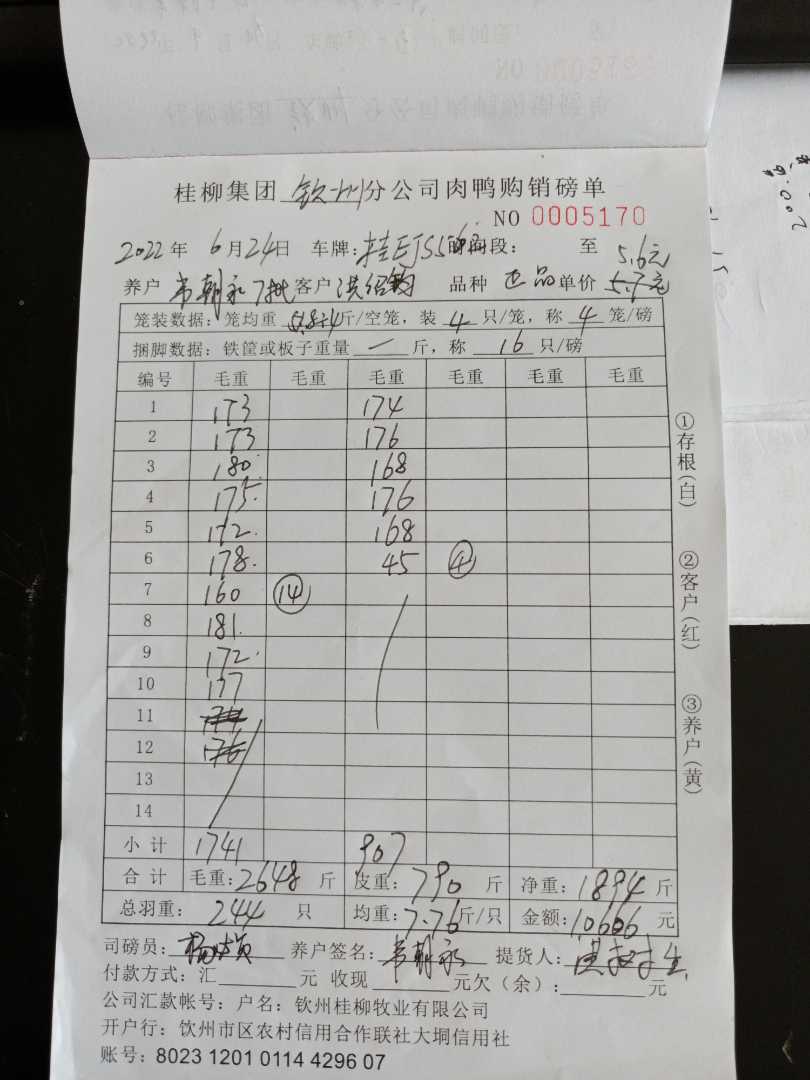 桂柳集团 钦州 分公司肉鸭购销磅单
NO 0005170
2022 年 6 月 24 日 车牌: 桂E 时间段: 至 5.6元
养户 韦朝永 7批 客户 洪绍钧 品种 正品 单价 5.7元
笼装数据: 笼均重 斤/空笼, 装 4 只/笼, 称 4 笼/磅
捆脚数据: 铁筐或板子重量 一 斤, 称 16 只/磅
编号 毛重 毛重 毛重 毛重 毛重 毛重
1 173 174
2 173 176
3 180 168
4 175 176
5 172 168
6 178 45 ④
7 160 ⑭
8 181
9 172
10 177
11 174
12 176
13
14
小计 1741 907
合计 毛重: 2648 斤 皮重: 790 斤 净重: 1894 斤
总羽重: 244 只 均重: 7.76 斤/只 金额: 10606 元
司磅员: 养户签名: 韦朝永 提货人:
付款方式: 汇 元 收现 元欠(余): 元
公司汇款帐号: 户名: 钦州桂柳牧业有限公司
开户行: 钦州市区农村信用合作联社大垌信用社
账号: 8023 1201 0114 4296 07
①存根(白)
②客户(红)
③养户(黄)